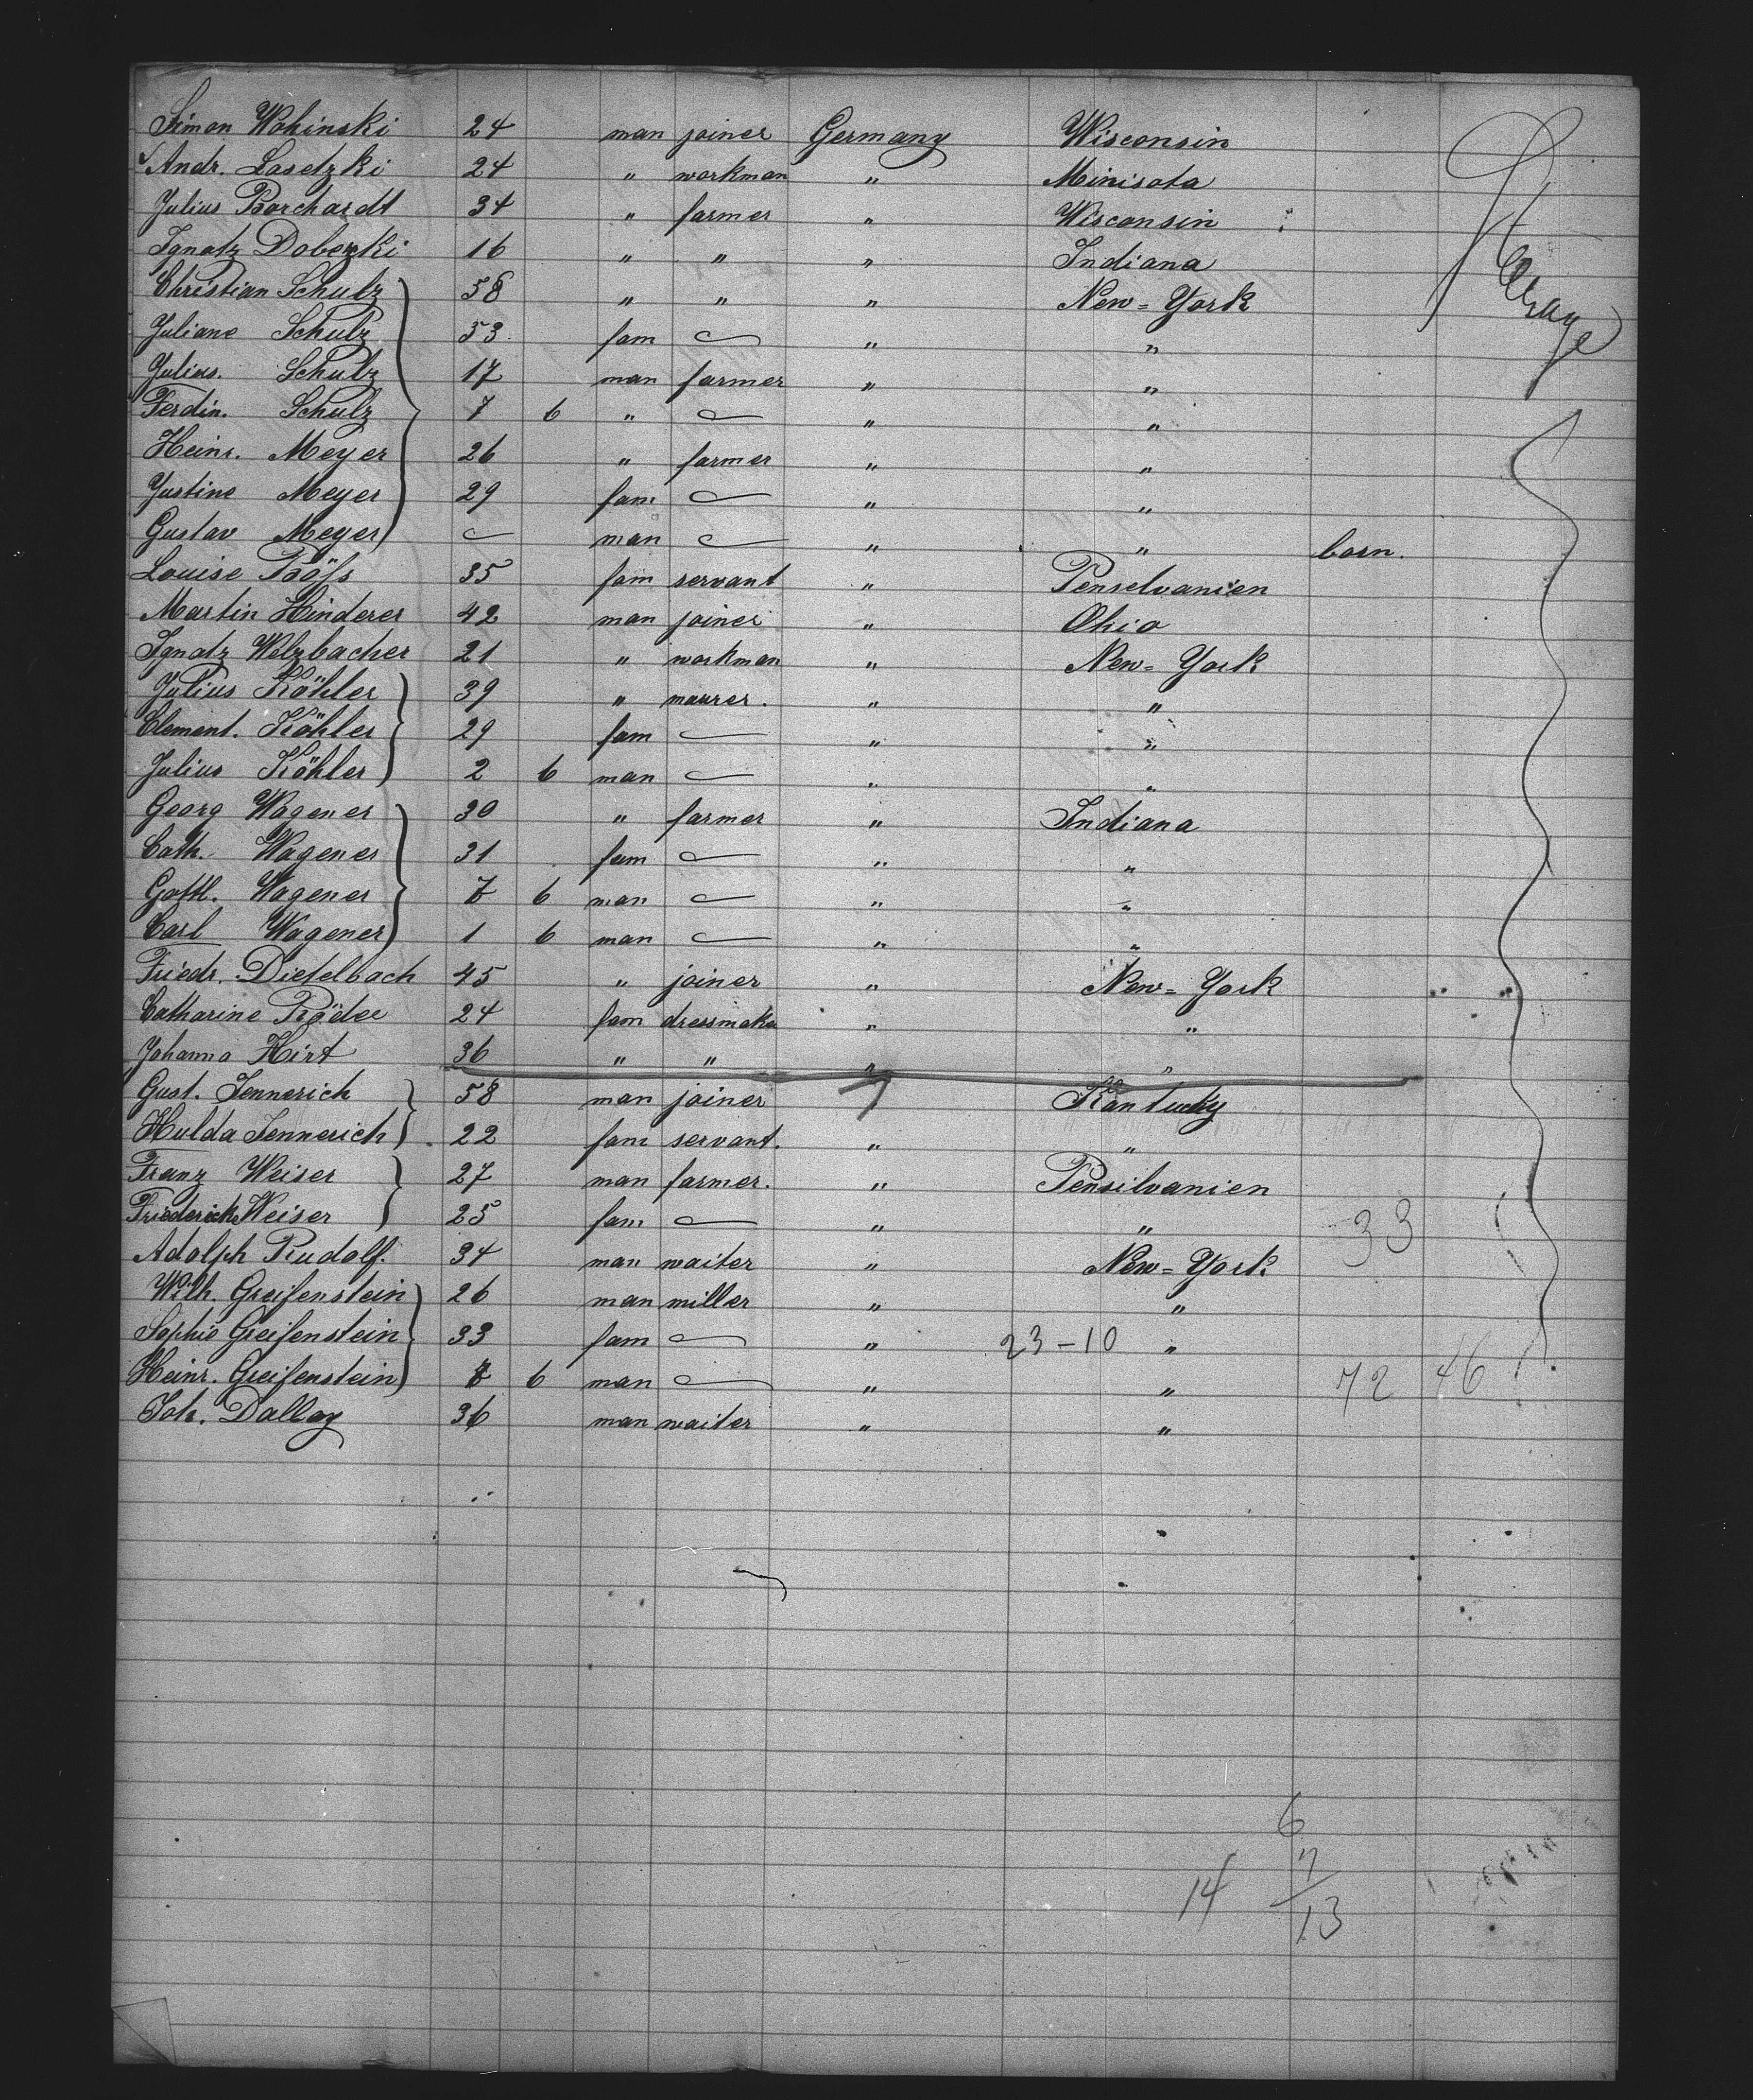 Simon Wohinski 24 man joiner Germany Wisconsin
Andr. Lasetzki 24 " workman " Minisota
Julius Borchardt 34 " farmer " Wisconsin
Ignatz Doberzki 16 " " " Indiana
Christian Schulz 58 " " " New=York
Juliane Schulz 53 fam — " "
Julius. Schulz 17 man farmer " "
Ferdin. Schulz 7 6 " — " "
Heinr. Meyer 26 " farmer " "
Justine Meyer 29 fam — " "
Gustav Meyer — man — " " born.
Louise 35 fam servant " Penselvanien
Martin Hinderer 42 man joiner " Ohio
Ignatz Welzbacher 21 " workman " New=York
Julius Köhler 39 " maurer. " "
Clement. Köhler 29 fam — " "
Julius Köhler 2 6 man — " "
Georg Wagener 30 " farmer " Indiana
Cath. Wagener 31 fam — " "
Gottl. Wagener 7 6 man — " "
Carl Wagener 1 6 man — " "
Friedr. Dietelbach 45 " joiner " New=York
Catharine 24 fam dressmaker " "
Johanna Hirt 36 " " " "
Gust. Jennerich 58 man joiner " Kantucky
Hulda Jennerich 22 fam servant. " "
Franz Weiser 27 man farmer. " Pensilvanien
Friederike Weiser 25 fam — " " 33
Adolph Rudolf. 34 man waiter " New=York
Wilh. Greifenstein 26 man miller " "
Sophie Greifenstein 33 fam — " 23-10 "
Heinr. Greifenstein 7 6 man — " " 72 46
Joh. Dalley 36 man waiter " "
6
7
14 13